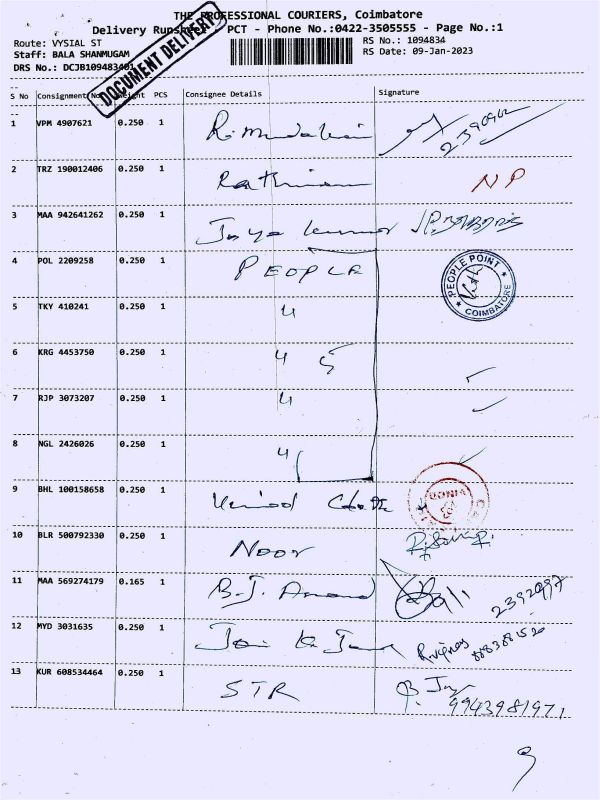 THE PROFESSIONAL COURIERS, Coimbatore
Delivery Runsheet, PCT - Phone No.:0422-3505555 - Page No.:1
Route: VYSIAL ST RS No.: 1094834
Staff: BALA SHANMUGAM RS Date: 09-Jan-2023
DRS No.: DCJB109483401
DOCUMENT DELIVERY
S No Consignment No Weight PCS Consignee Details Signature
1 VPM 4907621 0.250 1
2 TRZ 190012406 0.250 1 NP
3 MAA 942641262 0.250 1 Jaya kumar
4 POL 2209258 0.250 1 PEOPLE PEOPLE POINT COIMBATORE
5 TKY 410241 0.250 1 4
6 KRG 4453750 0.250 1 4 5
7 RJP 3073207 0.250 1 4
8 NGL 2426026 0.250 1 4
9 BHL 100158658 0.250 1
10 BLR 500792330 0.250 1 NOOR
11 MAA 569274179 0.165 1 B.J. Anand 2392097
12 MYD 3031635 0.250 1
13 KUR 608534464 0.250 1 STR 9943981971